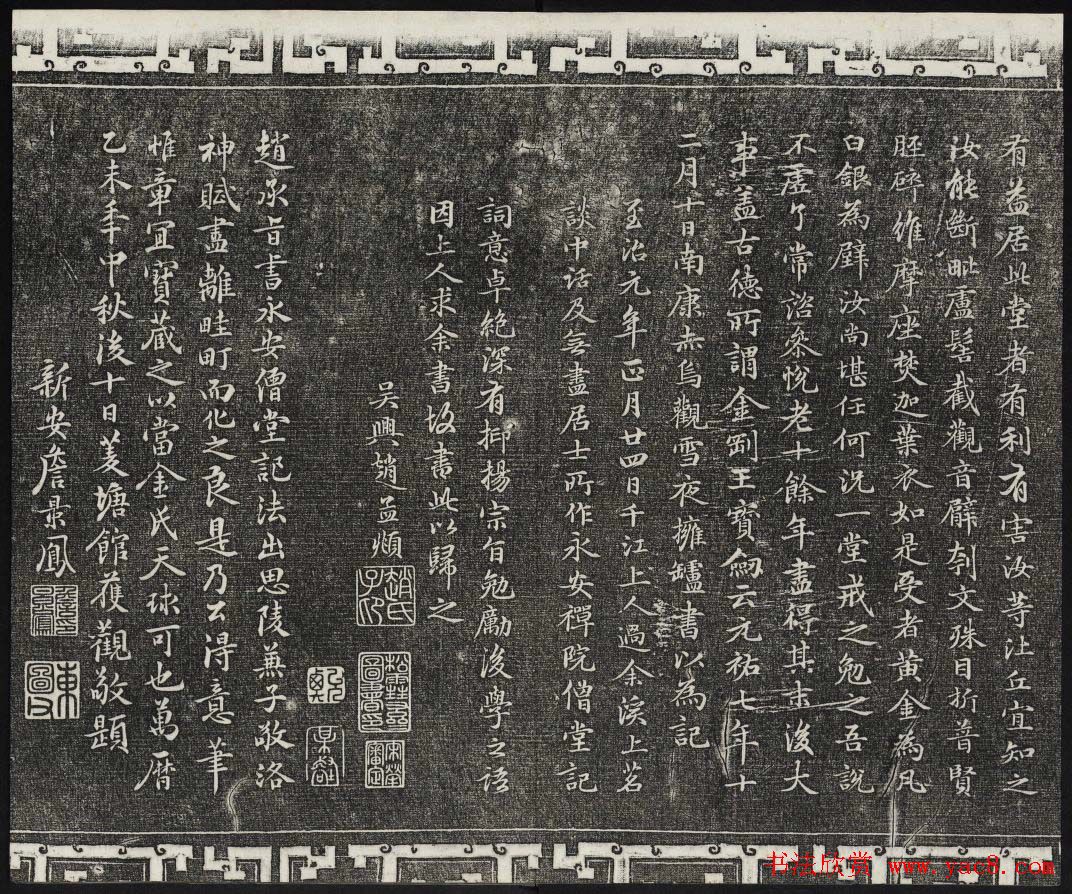 有益居此堂者有利有害汝等比丘宜知之
汝能斷毗盧髻截觀音臂刳文殊目折普賢
脛碎維摩座焚迦葉衣如是受者黃金為凡
白銀為壁汝尚堪任何況一堂戒之勉之吾說
不虛了常諮參悅老十餘年盡得其末後大
事盖古德所謂金剛王寶劔云元祐七年十
二月十日南康赤烏觀雪夜擁鑪書以為記
至治元年正月廿四日千江上人過余溪上茗
談中話及無盡居士所作永安禪院僧堂記
詞意卓絶深有抑揚宗旨勉勵後學之語
因上人求余書故書此以歸之
吳興趙孟頫
趙氏子印
趙承旨書永安僧堂記法出思陵兼子敬洛
神賦盡離畦町而化之良是乃公得意筆
惟章宜寶藏之以當金氏天球可也萬曆
乙未年中秋後十日菱塘館獲觀敬題
新安詹景鳳
東圖父
書法欣赏 www.yac8.com